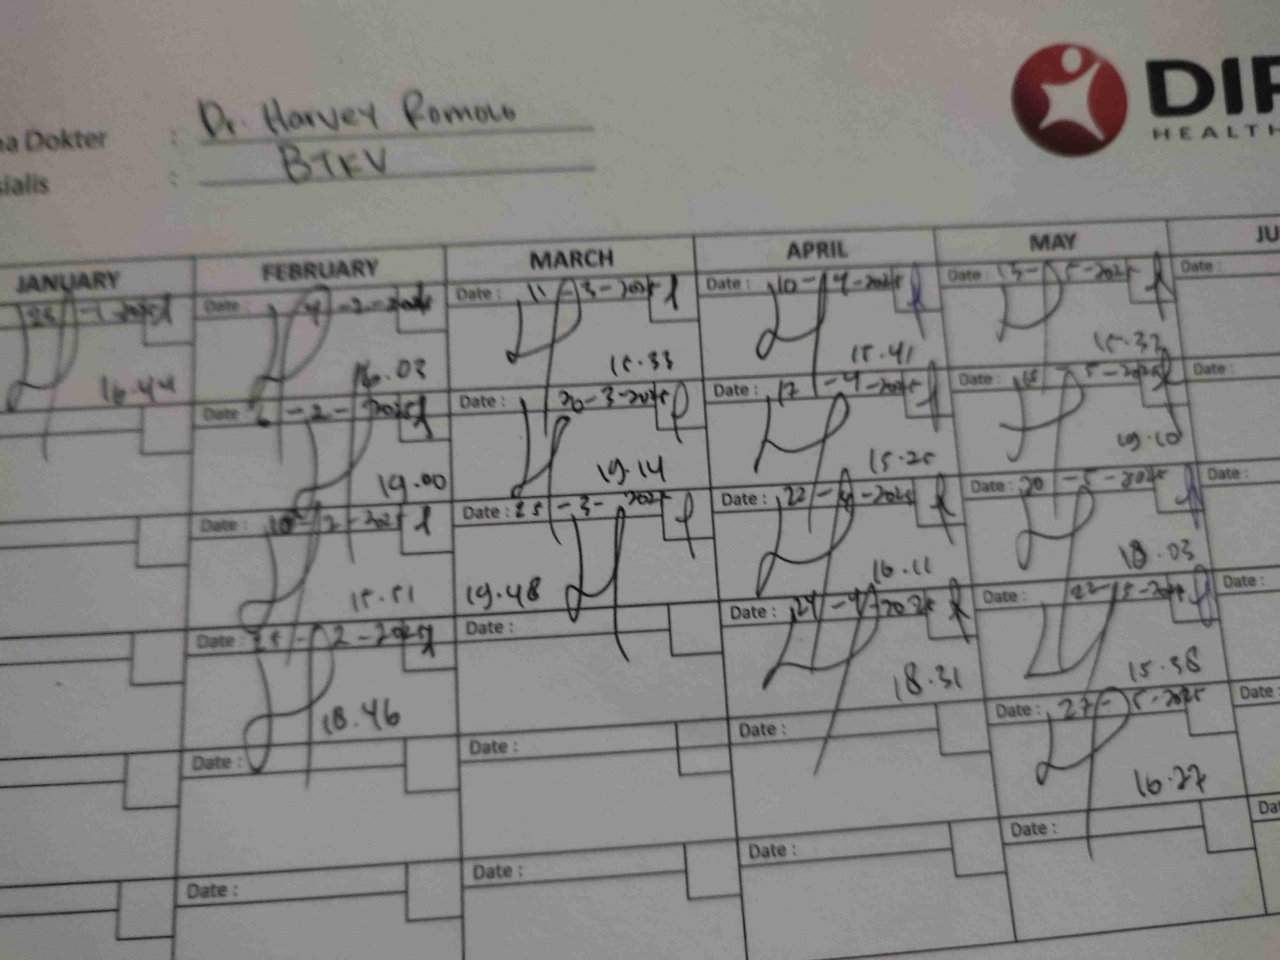 DIR
HEALTH
na Dokter : Dr. Harvey Romolo
sialis : BTKV
JANUARY FEBRUARY MARCH APRIL MAY JU
Date : 4-2-2025 Date : 11-3-2025 Date : 10-4-2025 Date : 13-5-2025 Date :
16.44 16.03 15.33 15.41 15.33
Date : 6-2-2025 Date : 20-3-2025 Date : 17-4-2025 Date : 15-5-2025 Date :
19.00 19.14 15.25 19.10
Date : 10-2-2025 Date : 25-3-2025 Date : 22-4-2025 Date : 20-5-2025 Date :
15.51 19.48 16.11 18.03
Date : 25-2-2025 Date : Date : 24-4-2025 Date : 22-5-2025 Date :
18.46 18.31 15.38
Date : Date : Date : Date : 27-5-2025 Date :
16.27
Date : Date : Date : Date : Da